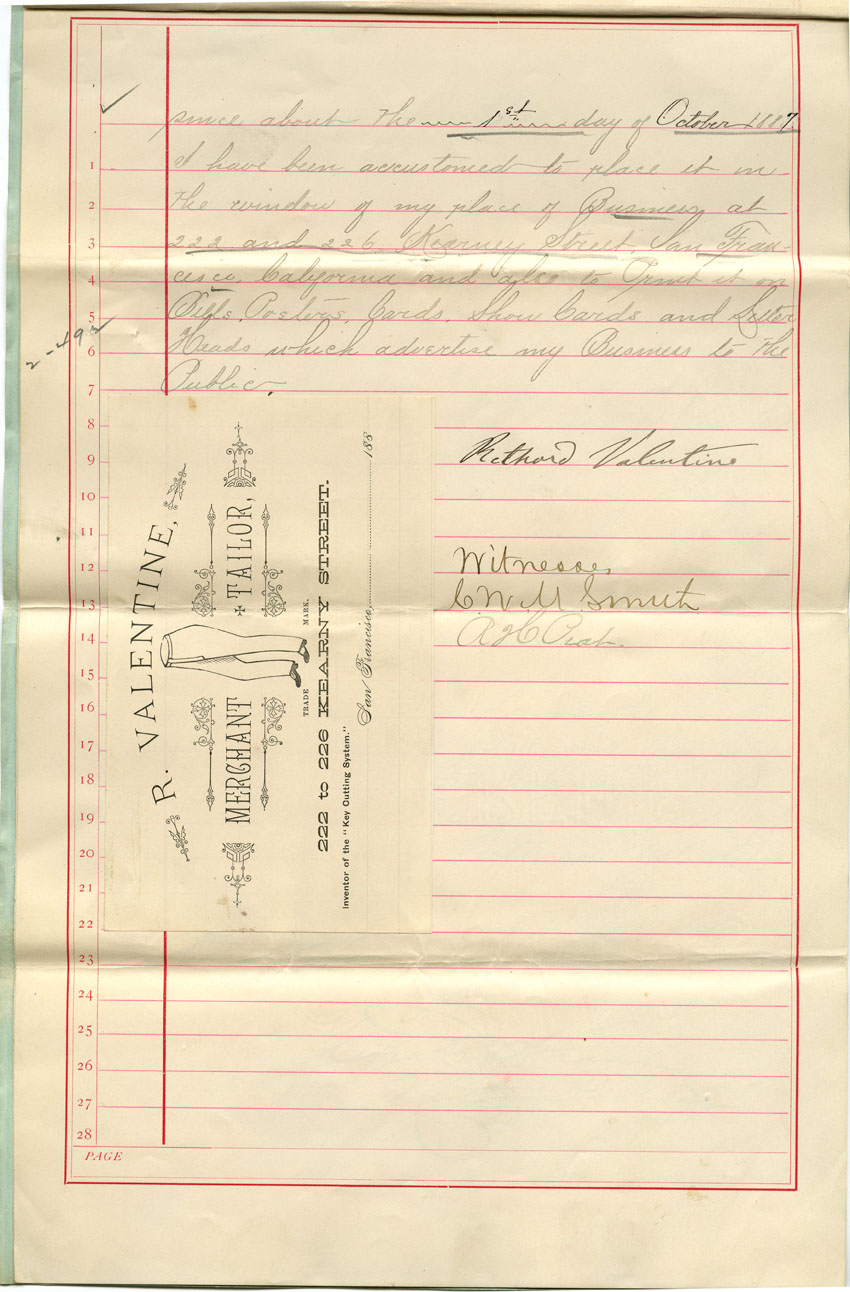 since about the 1st day of October 1887
I have been accustomed to place it in
the window of my place of Business at
222 and 226 Kearney Street, San Fran-
cisco, California and also to Print it on
Bills, Posters, Cards, Show Cards and Letter
Heads which advertise my Business to the
Public.
2-492
Richard Valentine
Witnesses
C W M Smith
A H
R. VALENTINE,
MERCHANT TAILOR,
TRADE MARK.
222 to 226 KEARNY STREET.
Inventor of the "Key Cutting System."
San Francisco, 188
1
2
3
4
5
6
7
8
9
10
11
12
13
14
15
16
17
18
19
20
21
22
23
24
25
26
27
28
PAGE